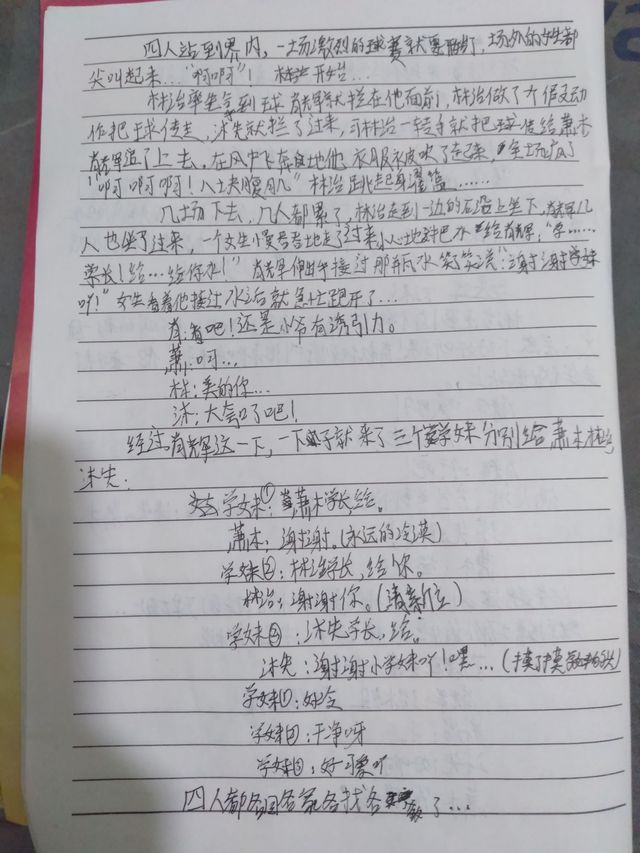 四人站到界内,一场激烈的球赛就要开打,场外的女生都
尖叫起来…."啊啊"! 比赛开始…
林治率先拿到球 肖辉就拦在他面前,林治做了个假动
作把球传走,沐失就拦了过来,可林治一转手就把球传给萧木
肖辉追了上去,在风中飞奔地他衣服被吹了起来,全场有了
"啊啊啊啊!八块腹肌"林治跳起身灌篮……
几场下去,几人都累了,林治走到一边的石沿上坐下,肖辉几
人也坐了过来,一个女生小慢吞吞地走了过来小心地把水给肖辉,"学……
学长!给…给你水!"肖辉伸出手接过那瓶水笑笑说:"谢谢学妹
吖!"女生看着他接过水后就急忙跑开了…
肖:看吧!还是小爷有诱引力。
萧:呵…
林:美的你…
沐:大气口了吧!
经过肖辉这一下,一下子就来了三个学妹分别给萧木林治
沐失:
学妹①:萧木学长给。
萧木:谢谢。(永远的冷漠)
学妹②:林治学长,给你。
林治:谢谢你。(清新位)
学妹③:沐失学长,给。
沐失:谢谢小学妹吖!嘿…(摸了摸的头)
学妹①:好冷
学妹②:干净呀
学妹③:好可爱吖
四人都各回各家各找各了…